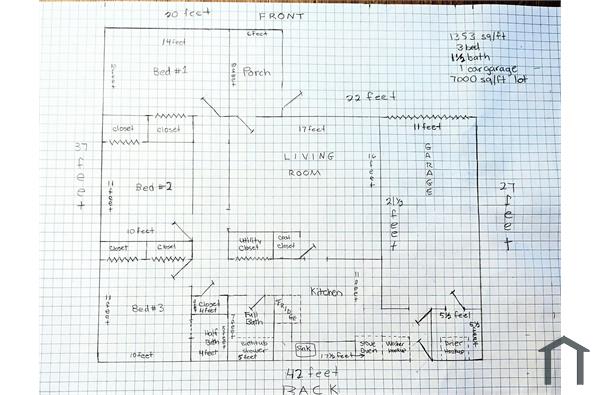 20 feet FRONT
1353 sq/ft
3 bed
1½ bath
1 car garage
7000 sq/ft lot
6 feet
14 feet
Bed #1
Porch
22 feet
closet
closet
17 feet
11 feet
37 feet
LIVING
ROOM
16 feet
GARAGE
11 feet
Bed #2
21½ feet
27 feet
10 feet
Closet
Closet
Utility
Closet
Coat
Closet
Kitchen
11 feet
11 feet
Bed #3
Closet
4 feet
Full
Bath
FRIDGE
5½ feet
Half
Bath
4 feet
Bathtub
shower
5 feet
Sink
17½ feet
Stove
Oven
Washer
Hookup
Dryer
Hookup
10 feet
42 feet
BACK